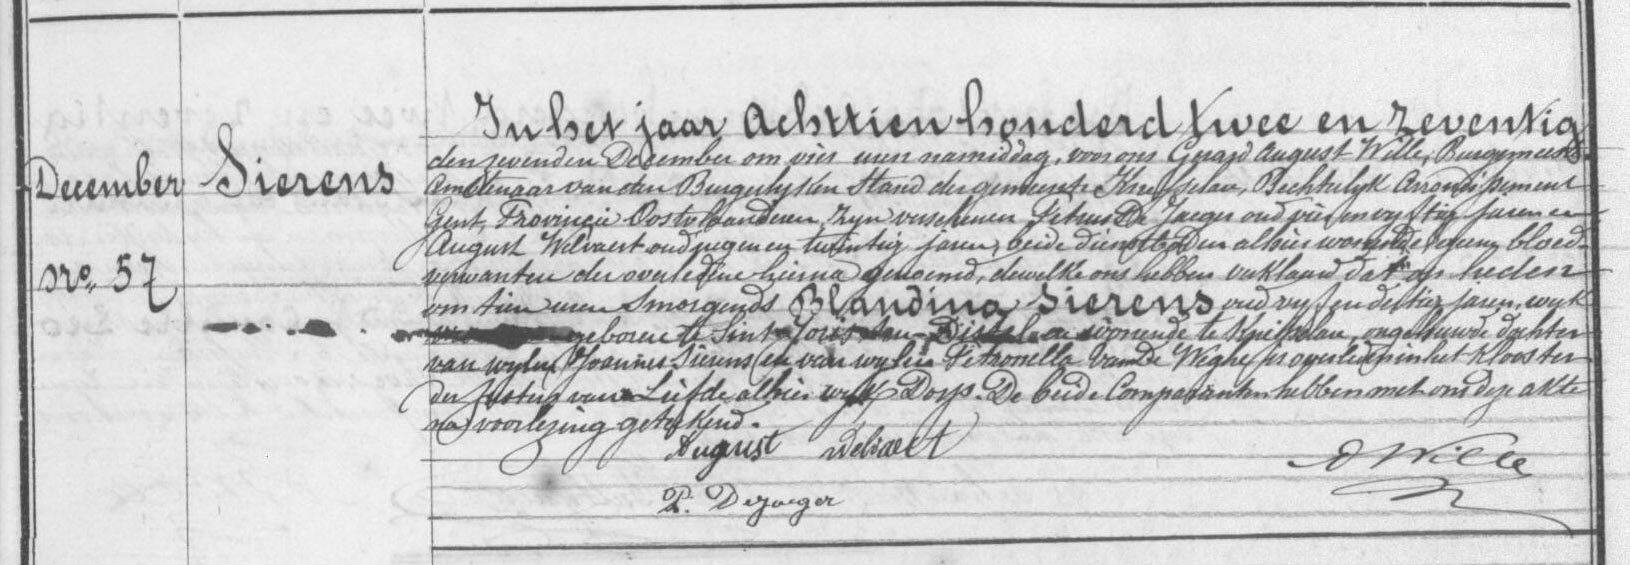 December
No. 57
Sierens
In het jaar Achttien honderd twee en zeventig
den zevenden December om vier uren namiddag, voor ons Gerard August Wille, Burgemeester
Ambtenaar van den Burgerlyken Stand der gemeente Knesselare, Rechterlyk Arrondissement
Gent, Provincie Oostvlaanderen, zyn verschenen Petrus De Jaeger oud vier en vyftig jaren en
August Welvaert oud negen en twintig jaren, beide dienstboden alhier wonende, geene bloed-
verwanten der overledene hierna genoemd, dewelke ons hebben verklaard dat op heden
om tien uren Smorgends Blandina Sierens oud vyf en dertig jaren, wyk
geboren te Sint Joris ten Distel en wonende te Knesselare, ongehuwde dochter
van wylen Joannes Sierens en van wylen Petronella Van De Weghe, is overleden in het Klooster
der Zusters van Liefde alhier wyk Dorp. De beide Comparanten hebben met ons deze akte
na voorlezing geteekend.
August Welvaert
A Wille
P. Dejaeger